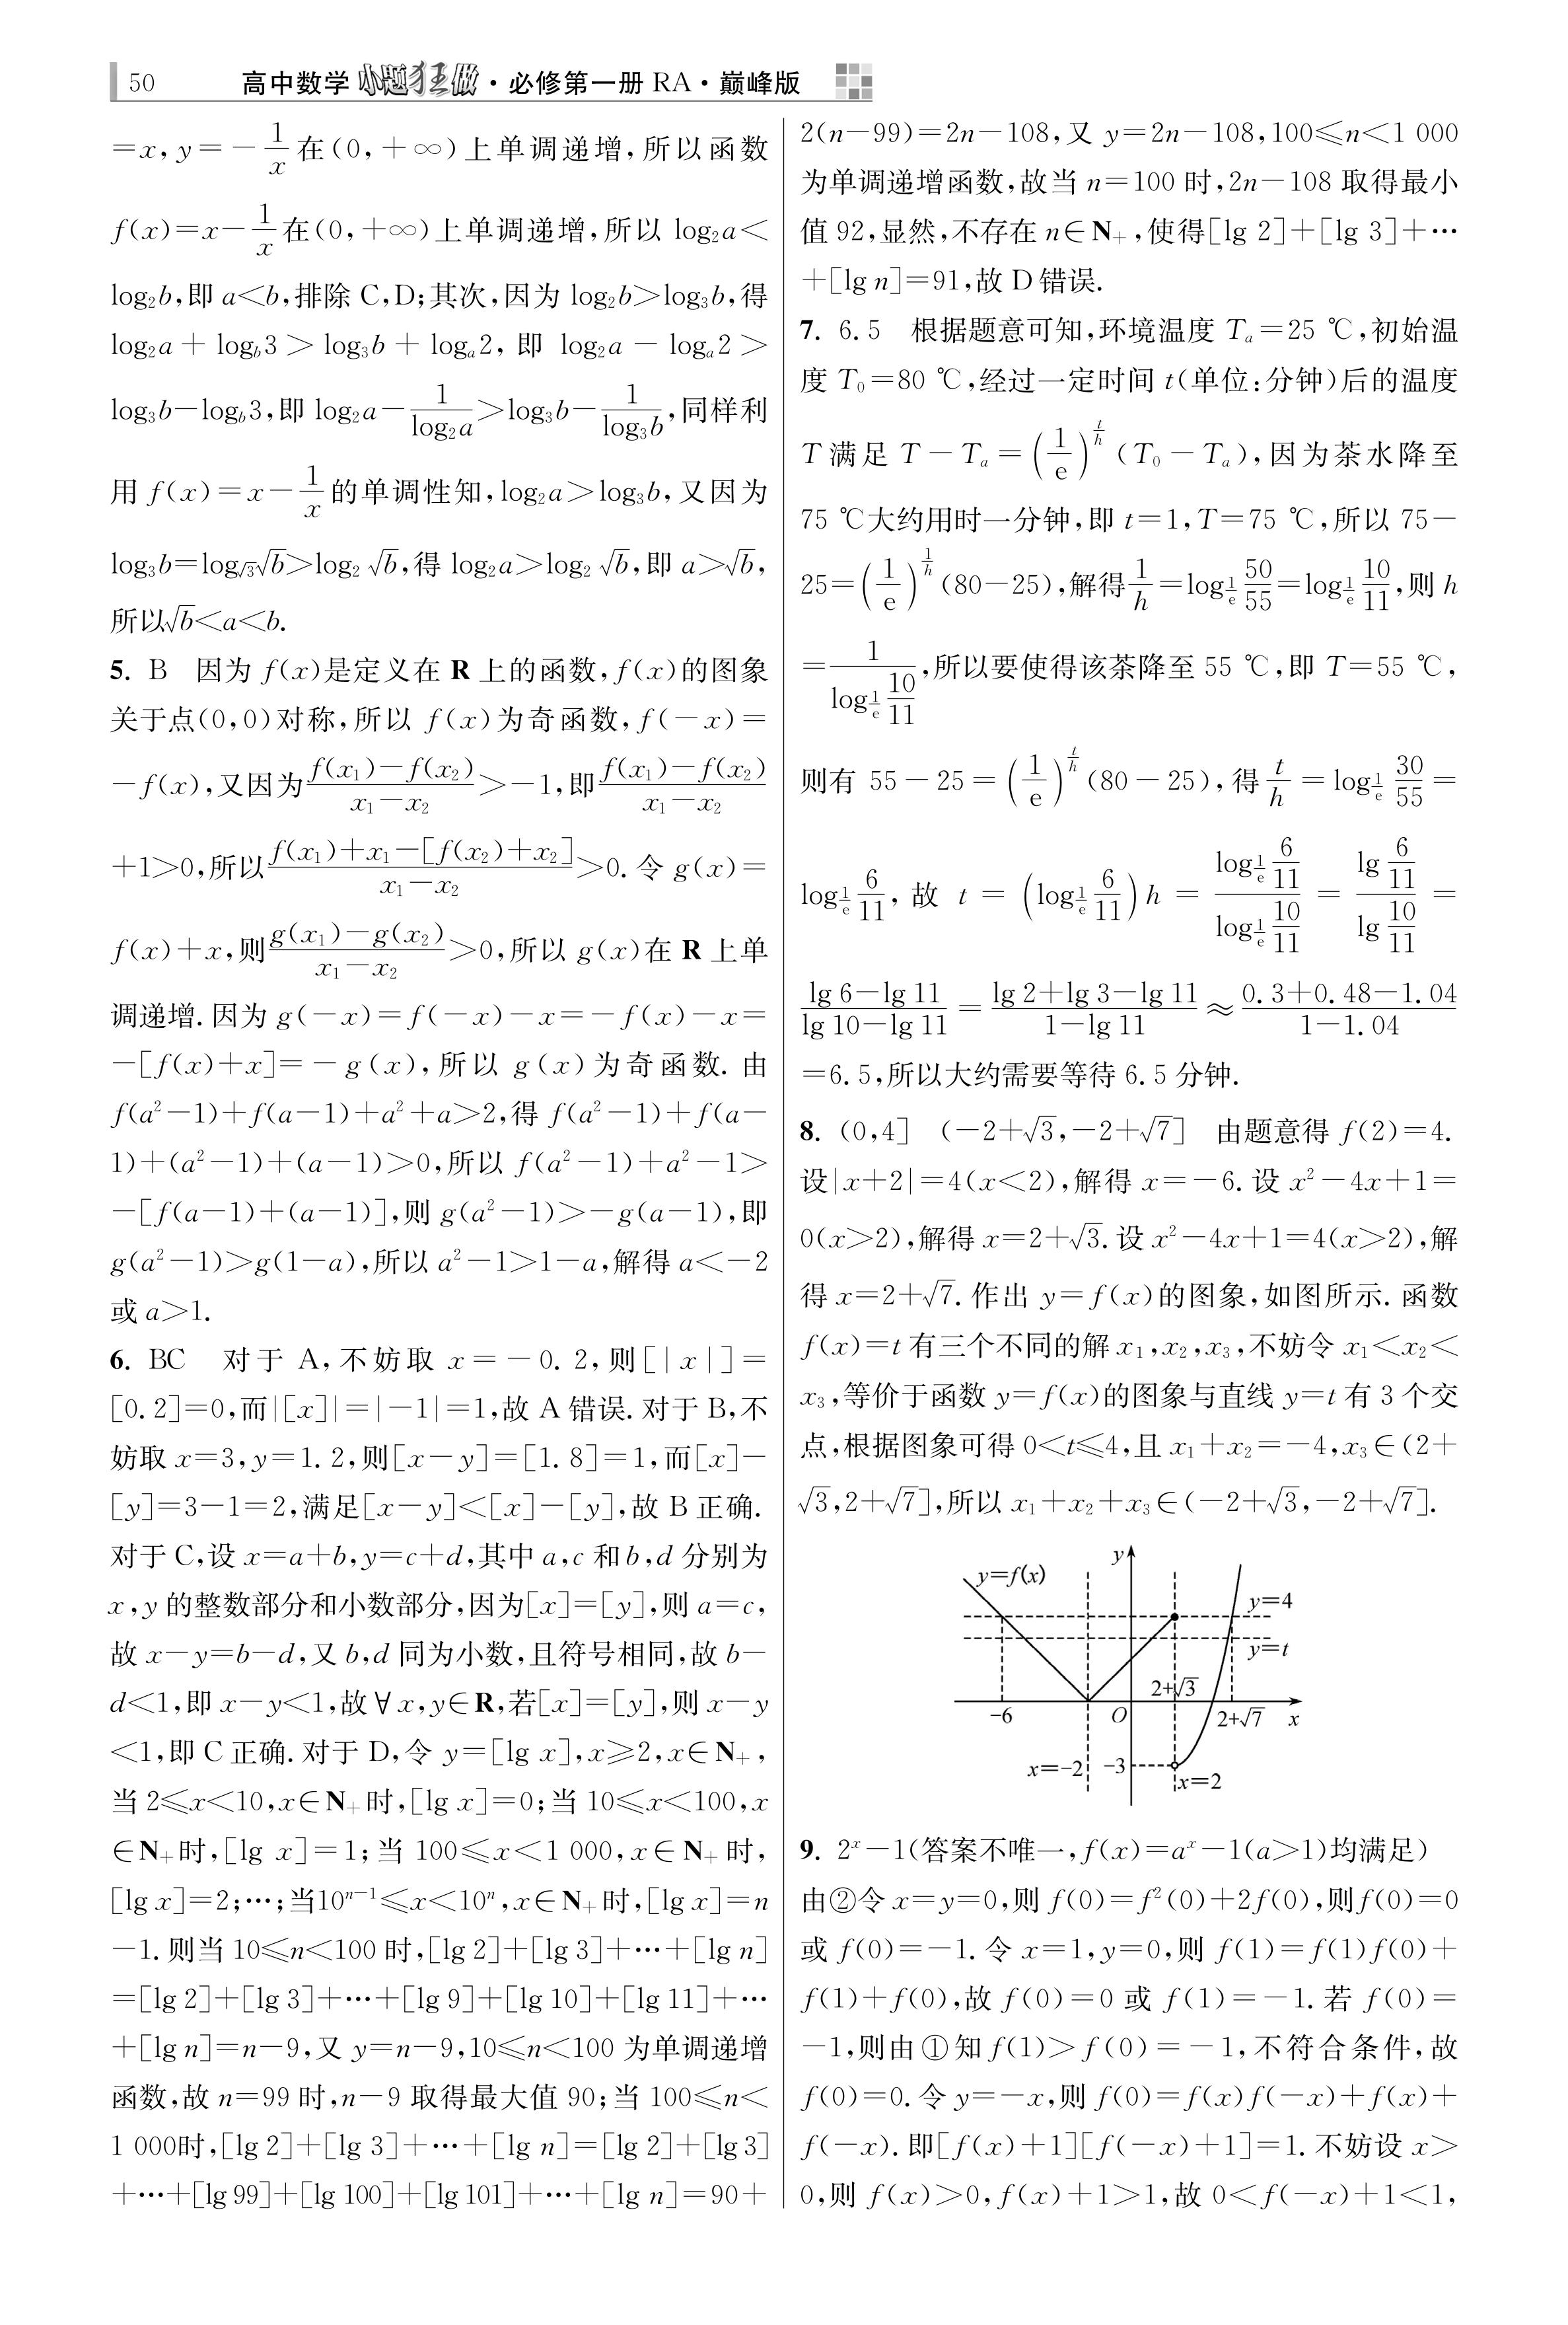 50 高中数学小题狂做·必修第一册 RA·巅峰版
=x,y=-\frac{1}{x}在(0,+∞)上单调递增,所以函数
f(x)=x-\frac{1}{x}在(0,+∞)上单调递增,所以 log₂a<
log₂b,即 a<b,排除 C,D;其次,因为 log₂b>log₃b,得
log₂a+log_b3>log₃b+log_a2,即 log₂a-log_a2>
log₃b-log_b3,即 log₂a-\frac{1}{log₂a}>log₃b-\frac{1}{log₃b},同样利
用 f(x)=x-\frac{1}{x}的单调性知,log₂a>log₃b,又因为
log₃b=log_{√3}√b>log₂√b,得 log₂a>log₂√b,即 a>√b,
所以√b<a<b.
5. B 因为 f(x)是定义在 R 上的函数,f(x)的图象
关于点(0,0)对称,所以 f(x)为奇函数,f(-x)=
-f(x),又因为\frac{f(x₁)-f(x₂)}{x₁-x₂}>-1,即\frac{f(x₁)-f(x₂)}{x₁-x₂}
+1>0,所以\frac{f(x₁)+x₁-[f(x₂)+x₂]}{x₁-x₂}>0.令 g(x)=
f(x)+x,则\frac{g(x₁)-g(x₂)}{x₁-x₂}>0,所以 g(x)在 R 上单
调递增.因为 g(-x)=f(-x)-x=-f(x)-x=
-[f(x)+x]=-g(x),所以 g(x)为奇函数.由
f(a²-1)+f(a-1)+a²+a>2,得 f(a²-1)+f(a-
1)+(a²-1)+(a-1)>0,所以 f(a²-1)+a²-1>
-[f(a-1)+(a-1)],则 g(a²-1)>-g(a-1),即
g(a²-1)>g(1-a),所以 a²-1>1-a,解得 a<-2
或 a>1.
6. BC 对于 A,不妨取 x=-0.2,则[|x|]=
[0.2]=0,而|[x]|=|-1|=1,故 A 错误.对于 B,不
妨取 x=3,y=1.2,则[x-y]=[1.8]=1,而[x]-
[y]=3-1=2,满足[x-y]<[x]-[y],故 B 正确.
对于 C,设 x=a+b,y=c+d,其中 a,c 和 b,d 分别为
x,y 的整数部分和小数部分,因为[x]=[y],则 a=c,
故 x-y=b-d,又 b,d 同为小数,且符号相同,故 b-
d<1,即 x-y<1,故∀x,y∈R,若[x]=[y],则 x-y
<1,即 C 正确.对于 D,令 y=[lg x],x≥2,x∈N₊,
当 2≤x<10,x∈N₊时,[lg x]=0;当 10≤x<100,x
∈N₊时,[lg x]=1;当 100≤x<1 000,x∈N₊时,
[lg x]=2;…;当10ⁿ⁻¹≤x<10ⁿ,x∈N₊时,[lg x]=n
-1.则当 10≤n<100 时,[lg 2]+[lg 3]+…+[lg n]
=[lg 2]+[lg 3]+…+[lg 9]+[lg 10]+[lg 11]+…
+[lg n]=n-9,又 y=n-9,10≤n<100 为单调递增
函数,故 n=99 时,n-9 取得最大值 90;当 100≤n<
1 000时,[lg 2]+[lg 3]+…+[lg n]=[lg 2]+[lg 3]
+…+[lg 99]+[lg 100]+[lg 101]+…+[lg n]=90+
2(n-99)=2n-108,又 y=2n-108,100≤n<1 000
为单调递增函数,故当 n=100 时,2n-108 取得最小
值 92,显然,不存在 n∈N₊,使得[lg 2]+[lg 3]+…
+[lg n]=91,故 D 错误.
7. 6.5 根据题意可知,环境温度 Tₐ=25 ℃,初始温
度 T₀=80 ℃,经过一定时间 t(单位:分钟)后的温度
T 满足 T-Tₐ=(\frac{1}{e})^{\frac{t}{h}}(T₀-Tₐ),因为茶水降至
75 ℃大约用时一分钟,即 t=1,T=75 ℃,所以 75-
25=(\frac{1}{e})^{\frac{1}{h}}(80-25),解得\frac{1}{h}=log_{\frac{1}{e}}\frac{50}{55}=log_{\frac{1}{e}}\frac{10}{11},则 h
=\frac{1}{log_{\frac{1}{e}}\frac{10}{11}},所以要使得该茶降至 55 ℃,即 T=55 ℃,
则有 55-25=(\frac{1}{e})^{\frac{t}{h}}(80-25),得\frac{t}{h}=log_{\frac{1}{e}}\frac{30}{55}=
log_{\frac{1}{e}}\frac{6}{11},故 t=(log_{\frac{1}{e}}\frac{6}{11})h=\frac{log_{\frac{1}{e}}\frac{6}{11}}{log_{\frac{1}{e}}\frac{10}{11}}=\frac{lg\frac{6}{11}}{lg\frac{10}{11}}=
\frac{lg 6-lg 11}{lg 10-lg 11}=\frac{lg 2+lg 3-lg 11}{1-lg 11}≈\frac{0.3+0.48-1.04}{1-1.04}
=6.5,所以大约需要等待 6.5 分钟.
8. (0,4] (-2+√3,-2+√7] 由题意得 f(2)=4.
设|x+2|=4(x<2),解得 x=-6.设 x²-4x+1=
0(x>2),解得 x=2+√3.设 x²-4x+1=4(x>2),解
得 x=2+√7.作出 y=f(x)的图象,如图所示.函数
f(x)=t 有三个不同的解 x₁,x₂,x₃,不妨令 x₁<x₂<
x₃,等价于函数 y=f(x)的图象与直线 y=t 有 3 个交
点,根据图象可得 0<t≤4,且 x₁+x₂=-4,x₃∈(2+
√3,2+√7],所以 x₁+x₂+x₃∈(-2+√3,-2+√7].
y
y=f(x)
y=4
y=t
2+√3
-6 O 2+√7 x
x=-2 -3
x=2
9. 2ˣ-1(答案不唯一,f(x)=aˣ-1(a>1)均满足)
由②令 x=y=0,则 f(0)=f²(0)+2f(0),则f(0)=0
或 f(0)=-1.令 x=1,y=0,则 f(1)=f(1)f(0)+
f(1)+f(0),故 f(0)=0 或 f(1)=-1.若 f(0)=
-1,则由①知 f(1)>f(0)=-1,不符合条件,故
f(0)=0.令 y=-x,则 f(0)=f(x)f(-x)+f(x)+
f(-x).即[f(x)+1][f(-x)+1]=1.不妨设 x>
0,则 f(x)>0,f(x)+1>1,故 0<f(-x)+1<1,